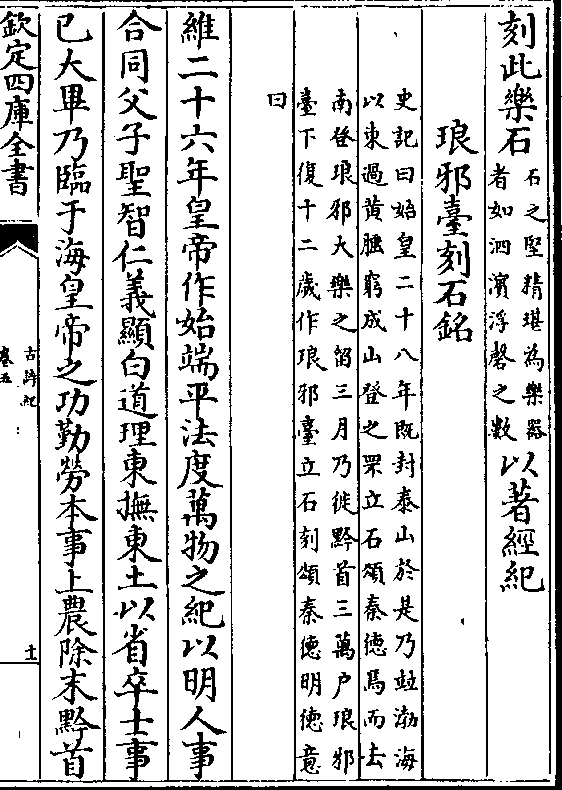 刻此樂石石之堅精堪為樂器者如泗濱浮磬之數以著經紀
琅邪臺刻石銘
史記曰始皇二十八年既封泰山於是乃竝渤海
以東過黄腄窮成山登之罘立石頌秦德焉而去
南登琅邪大樂之留三月乃徙黔首三萬户琅邪
臺下復十二歲作琅邪臺立石刻頌秦德明德意
曰
維二十六年皇帝作始端平法度萬物之紀以明人事
合同父子聖智仁義顯白道理東撫東土以省卒士事
已大畢乃臨于海皇帝之功勤勞本事上農除末黔首
欽定四庫全書
古詩紀
卷五
十一